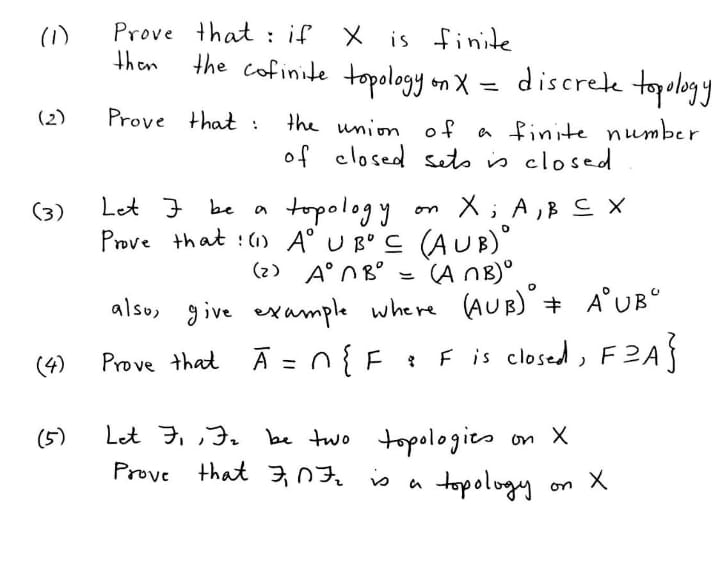 (1) Prove that : if X is finite
then the cofinite topology on X = discrete topology
(2) Prove that : the union of a finite number
of closed sets is closed
(3) Let ℱ be a topology on X ; A , B ⊆ X
Prove that : (1) A° ∪ B° ⊆ (A ∪ B)°
(2) A° ∩ B° = (A ∩ B)°
also, give example where (A ∪ B)° ≠ A° ∪ B°
(4) Prove that Ā = ∩ { F : F is closed , F ⊇ A }
(5) Let ℱ₁ , ℱ₂ be two topologies on X
Prove that ℱ₁ ∩ ℱ₂ is a topology on X